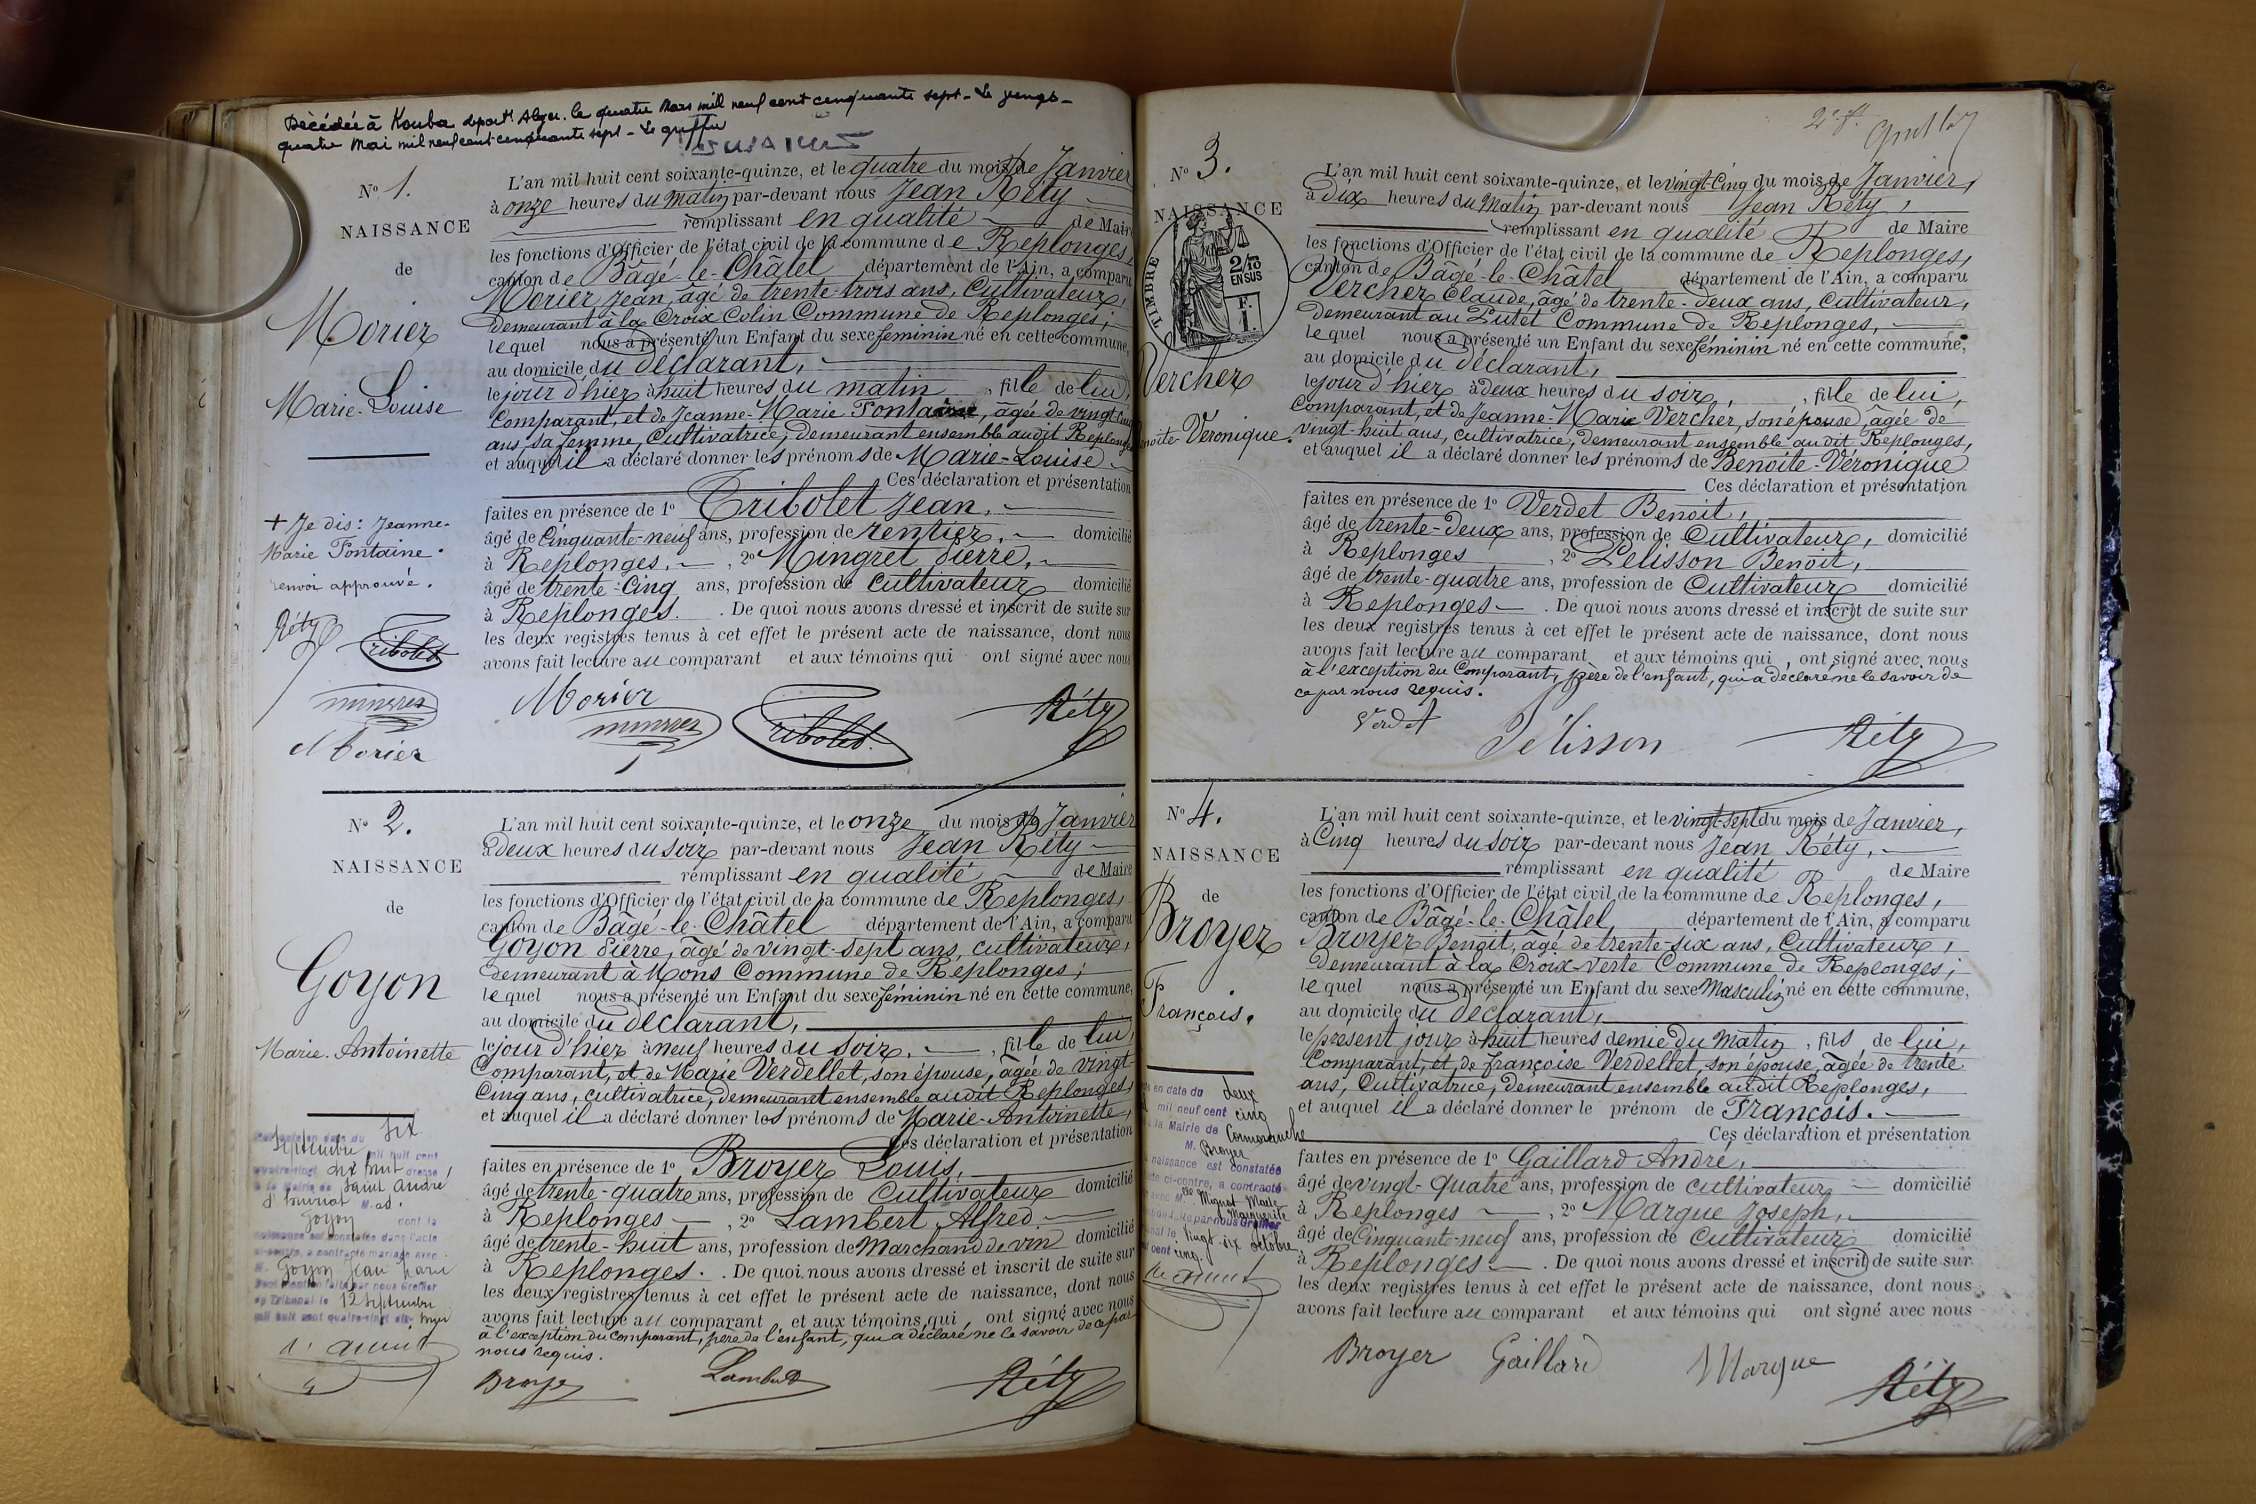 Décédée à Kouba départt Alger. le quatre Mars mil neuf cent cinquante sept - Le vingt-
quatre Mai mil neuf cent cinquante sept - Le greffier
No 1.
NAISSANCE
de
Morier
Marie-Louise
+ Je dis: Jeanne-
Marie Fontaine.
renvoi approuvé.
Réty
Tribolet
mingret
Morier
L'an mil huit cent soixante-quinze, et le quatre du mois de Janvier
à onze heures du matin par-devant nous Jean Réty
remplissant en qualité de Maire
les fonctions d'Officier de l'état civil de la commune de Replonges,
canton de Bâgé-le-Châtel département de l'Ain, a comparu
Morier Jean, âgé de trente-trois ans, Cultivateur,
demeurant à la Croix Colin Commune de Replonges;
lequel nous a présenté un Enfant du sexe féminin né en cette commune,
au domicile du déclarant,
le jour d'hier à huit heures du matin, fille de lui,
Comparant, et de Jeanne-Marie Fontaine, âgée de vingt-cinq
ans, sa femme, Cultivatrice, demeurant ensemble audit Replonges
et auquel il a déclaré donner les prénoms de Marie-Louise
Ces déclaration et présentation
faites en présence de 1o Tribolet Jean,
âgé de Cinquante-neuf ans, profession de rentier, domicilié
à Replonges, 2o Mingret Pierre,
âgé de trente-cinq ans, profession de cultivateur domicilié
à Replonges. De quoi nous avons dressé et inscrit de suite sur
les deux registres tenus à cet effet le présent acte de naissance, dont nous
avons fait lecture au comparant et aux témoins qui ont signé avec nous
Morier mingret Tribolet. Réty
No 2.
NAISSANCE
de
Goyon
Marie-Antoinette
six
Septembre mil huit cent
quatre-vingt dix huit dressé
à la Mairie de Saint André
d'huiriat M. ad.
Goyon dont la
naissance est constatée dans l'acte
ci-contre, a contracté mariage avec
M. Goyon Jean Marie
Dont mention faite par nous Greffier
du Tribunal le 12 Septembre
mil huit cent quatre-vingt dix huit
L'an mil huit cent soixante-quinze, et le onze du mois de Janvier
à deux heures du soir par-devant nous Jean Réty
remplissant en qualité de Maire
les fonctions d'Officier de l'état civil de la commune de Replonges,
canton de Bâgé-le-Châtel département de l'Ain, a comparu
Goyon Pierre, âgé de vingt-sept ans, cultivateur,
demeurant à Mons Commune de Replonges;
lequel nous a présenté un Enfant du sexe féminin né en cette commune,
au domicile du déclarant,
le jour d'hier à neuf heures du soir, fille de lui,
Comparant, et de Marie Verdellet, son épouse, âgée de vingt-
cinq ans, cultivatrice, demeurant ensemble audit Replonges,
et auquel il a déclaré donner les prénoms de Marie-Antoinette,
Ces déclaration et présentation
faites en présence de 1o Broyer Louis,
âgé de trente-quatre ans, profession de Cultivateur domicilié
à Replonges, 2o Lambert Alfred
âgé de trente-huit ans, profession de Marchand de vin domicilié
à Replonges. De quoi nous avons dressé et inscrit de suite sur
les deux registres tenus à cet effet le présent acte de naissance, dont nous
avons fait lecture au comparant et aux témoins qui, ont signé avec nous
à l'exception du Comparant, père de l'enfant, qui a déclaré ne le savoir de ce par
nous requis.
Broyer Lambert Réty
2e f.
No 3.
NAISSANCE
TIMBRE
2/10
EN SUS
F.
1.
Vercher
Benoîte Véronique.
L'an mil huit cent soixante-quinze, et le vingt-cinq du mois de Janvier,
à dix heures du matin par-devant nous Jean Réty,
remplissant en qualité de Maire
les fonctions d'Officier de l'état civil de la commune de Replonges,
canton de Bâgé-le-Châtel département de l'Ain, a comparu
Vercher Claude, âgé de trente-deux ans, Cultivateur,
demeurant au Putet Commune de Replonges,
lequel nous a présenté un Enfant du sexe féminin né en cette commune,
au domicile du déclarant,
le jour d'hier à deux heures du soir, fille de lui,
Comparant, et de Jeanne-Marie Vercher, son épouse, âgée de
vingt-huit ans, cultivatrice, demeurant ensemble audit Replonges,
et auquel il a déclaré donner les prénoms de Benoîte-Véronique
Ces déclaration et présentation
faites en présence de 1o Verdet Benoit,
âgé de trente-deux ans, profession de Cultivateur, domicilié
à Replonges, 2o Pelisson Benoît,
âgé de trente-quatre ans, profession de Cultivateur domicilié
à Replonges. De quoi nous avons dressé et inscrit de suite sur
les deux registres tenus à cet effet le présent acte de naissance, dont nous
avons fait lecture au comparant et aux témoins qui, ont signé avec nous
à l'exception du Comparant, père de l'enfant, qui a déclaré ne le savoir de
ce par nous requis.
Verdet Pélisson Réty
No 4.
NAISSANCE
de
Broyer
François.
en date du deux
mil neuf cent cinq
la Mairie de Cormoranche
M. Broyer
naissance est constatée
ci-contre, a contracté
avec Mlle Mignot Marie
Marguerite
par nous Greffier
le vingt-six octobre
cent cinq.
L'an mil huit cent soixante-quinze, et le vingt-sept du mois de Janvier,
à Cinq heures du soir par-devant nous Jean Réty,
remplissant en qualité de Maire
les fonctions d'Officier de l'état civil de la commune de Replonges,
canton de Bâgé-le-Châtel département de l'Ain, a comparu
Broyer Benoit, âgé de trente-six ans, Cultivateur,
demeurant à la Croix-Verte Commune de Replonges;
lequel nous a présenté un Enfant du sexe Masculin né en cette commune,
au domicile du déclarant,
le présent jour à huit heures demie du matin, fils de lui,
Comparant, et de Françoise Verdellet, son épouse, âgée de trente
ans, Cultivatrice, demeurant ensemble audit Replonges,
et auquel il a déclaré donner le prénom de François.
Ces déclaration et présentation
faites en présence de 1o Gaillard André,
âgé de vingt-quatre ans, profession de cultivateur domicilié
à Replonges, 2o Margue Joseph,
âgé de Cinquante-neuf ans, profession de Cultivateur domicilié
à Replonges. De quoi nous avons dressé et inscrit de suite sur
les deux registres tenus à cet effet le présent acte de naissance, dont nous
avons fait lecture au comparant et aux témoins qui ont signé avec nous
Broyer Gaillard Margue Réty